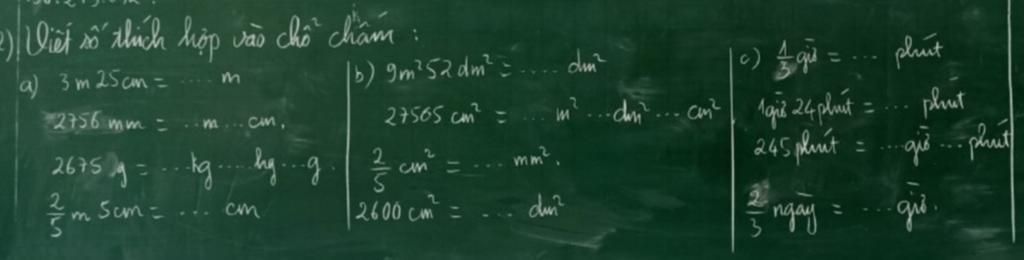 2) Viết số thích hợp vào chỗ chấm :
a) 3m 25cm = .... m
2756 mm = ...m ...cm.
2675 g = ...kg ....hg ...g.
2/5 m 5cm = ... cm
b) 9m² 52 dm² = .... dm²
27565 cm² = ... m² ...dm² ... cm²
2/5 cm² = ... mm².
2600 cm² = ... dm²
c) 1/3 giờ = ... phút
1giờ 24 phút = ... phút
245 phút = ...giờ ...phút
2/3 ngày = ...giờ.